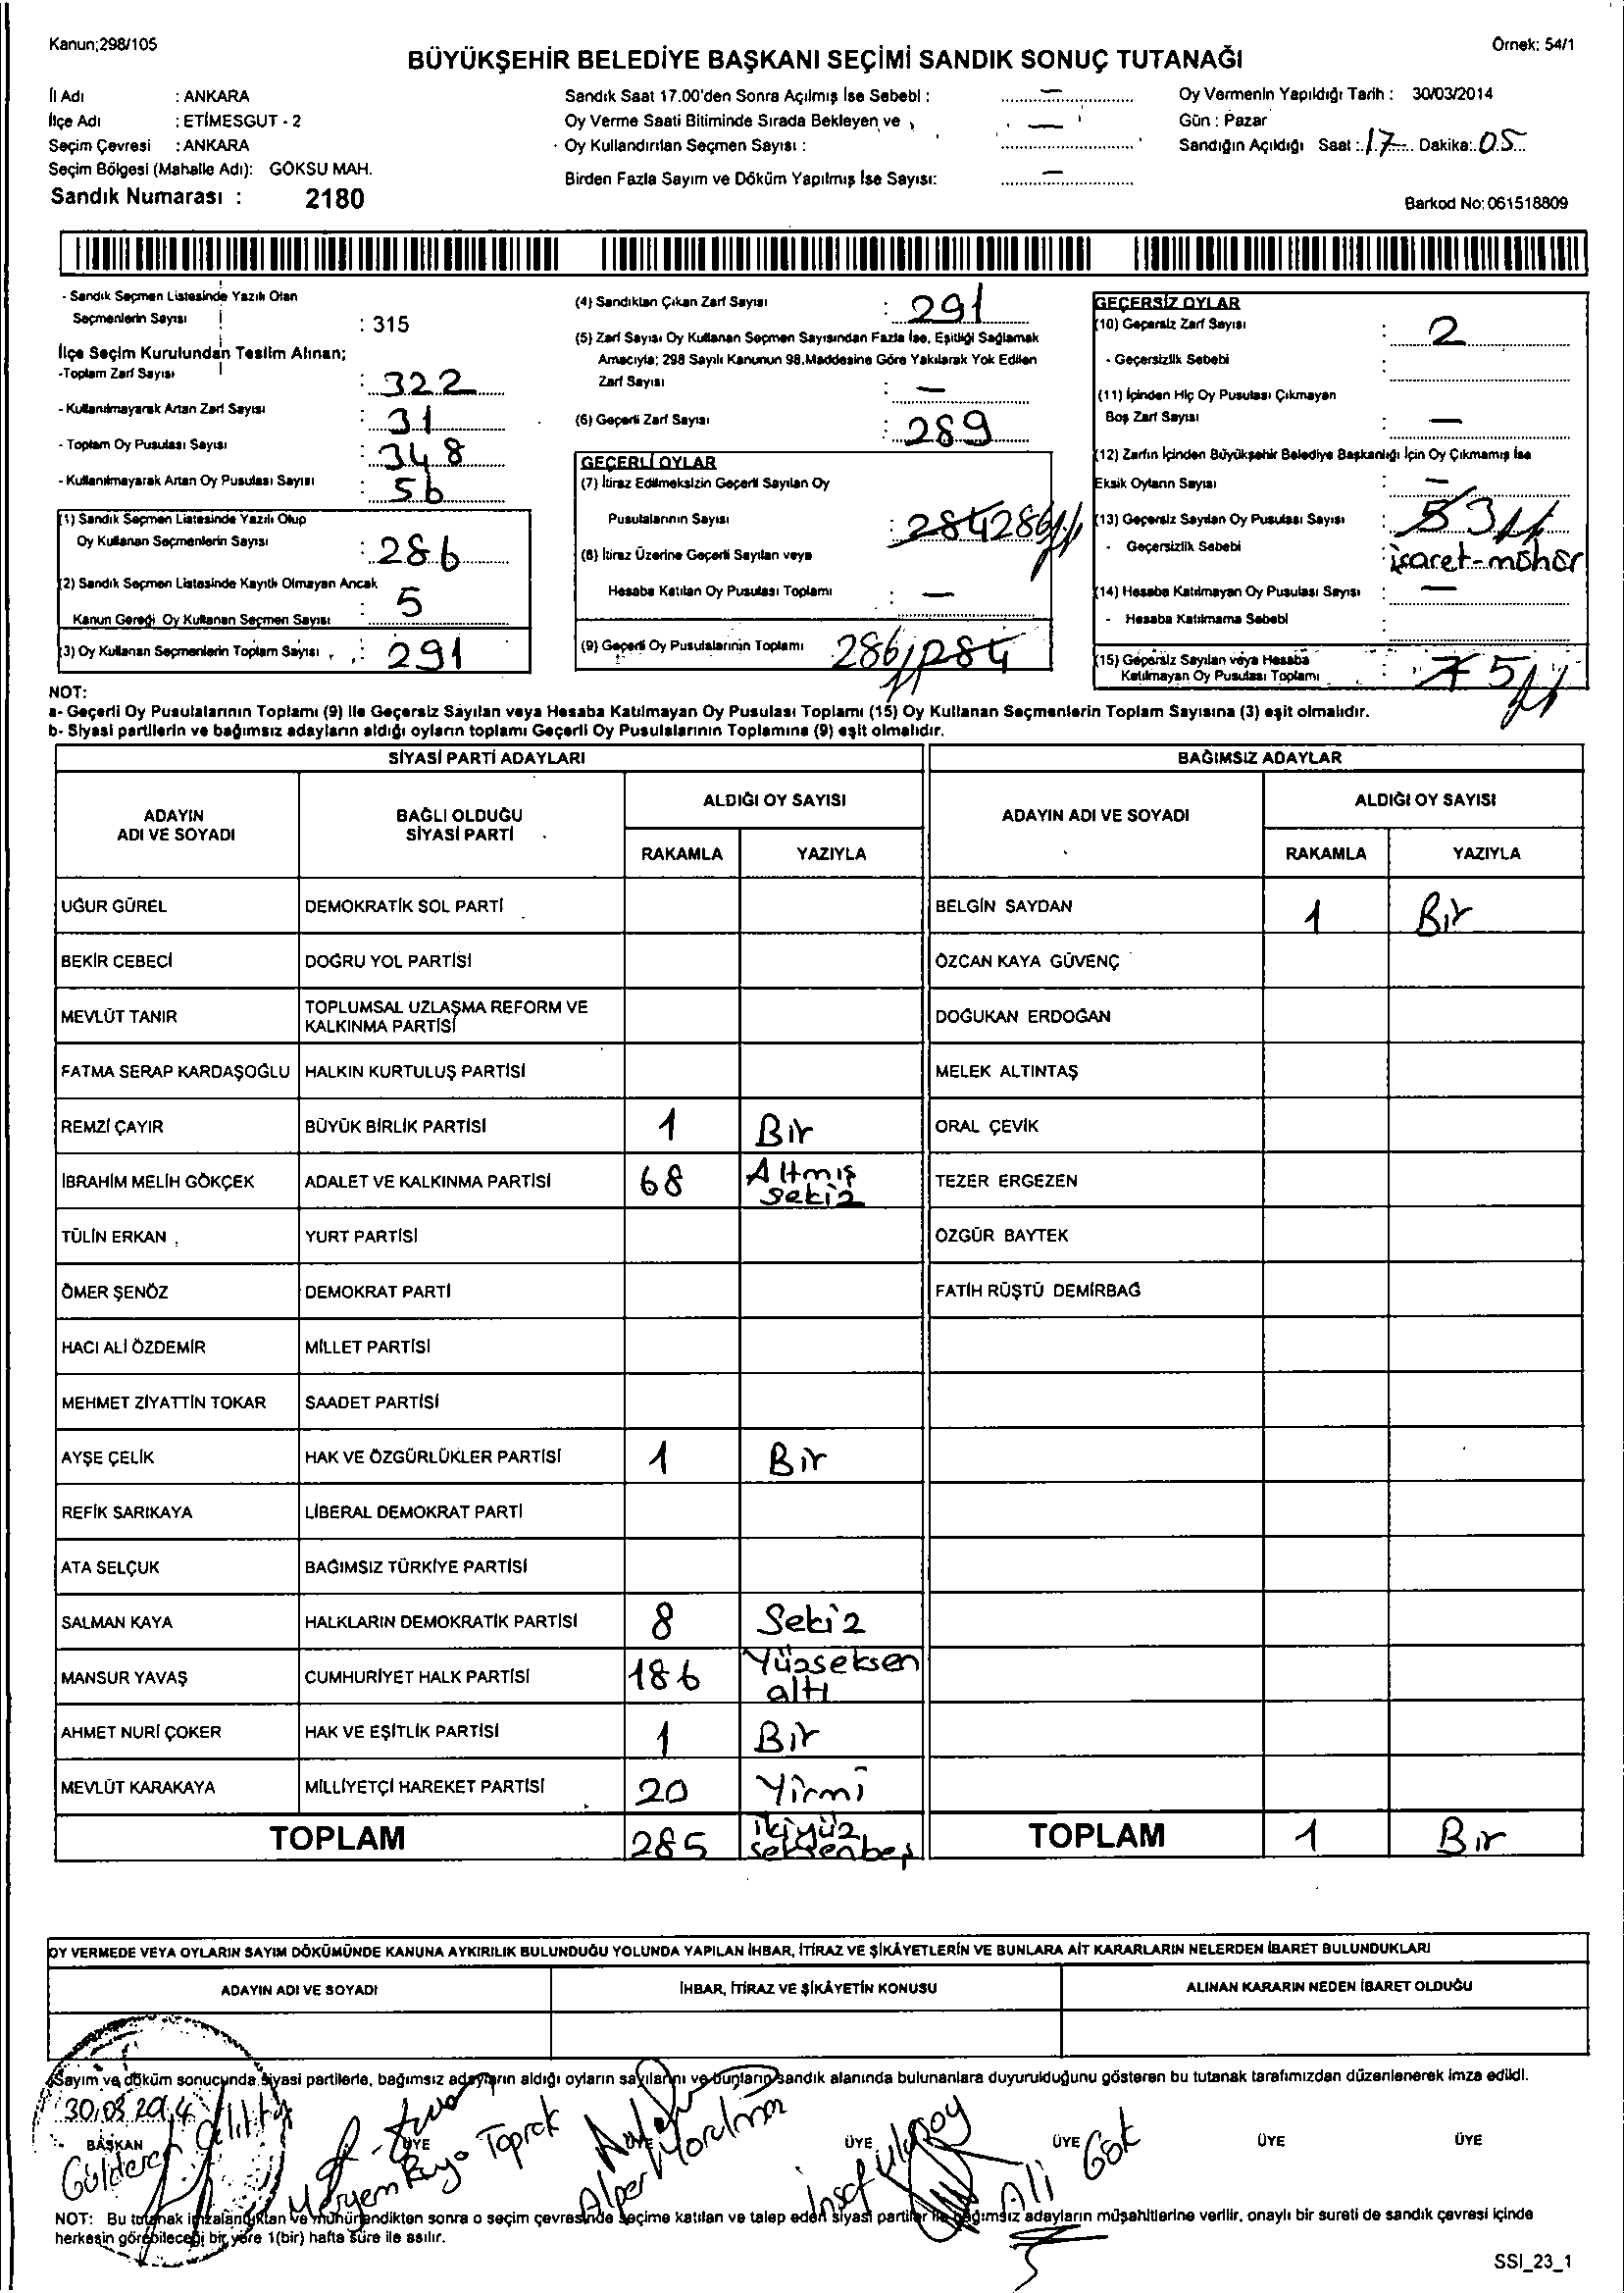 Kanun;298/105
Örnek: 54/1
BÜYÜKŞEHİR BELEDİYE BAŞKANI SEÇİMİ SANDIK SONUÇ TUTANAĞI
İl Adı : ANKARA
İlçe Adı : ETİMESGUT - 2
Seçim Çevresi : ANKARA
Seçim Bölgesi (Mahalle Adı): GÖKSU MAH.
Sandık Numarası : 2180
Sandık Saat 17.00'den Sonra Açılmış İse Sebebi : —
Oy Verme Saati Bitiminde Sırada Bekleyen ve
Oy Kullandırılan Seçmen Sayısı : —
Birden Fazla Sayım ve Döküm Yapılmış İse Sayısı: —
Oy Vermenin Yapıldığı Tarih : 30/03/2014
Gün : Pazar
Sandığın Açıldığı Saat : 17 Dakika: 05
Barkod No: 061518809
- Sandık Seçmen Listesinde Yazılı Olan
Seçmenlerin Sayısı : 315
İlçe Seçim Kurulundan Teslim Alınan;
-Toplam Zarf Sayısı : 322
- Kullanılmayarak Artan Zarf Sayısı : 31
- Toplam Oy Pusulası Sayısı : 348
- Kullanılmayarak Artan Oy Pusulası Sayısı : 56
(1) Sandık Seçmen Listesinde Yazılı Olup
Oy Kullanan Seçmenlerin Sayısı : 286
(2) Sandık Seçmen Listesinde Kayıtlı Olmayan Ancak
Kanun Gereği Oy Kullanan Seçmen Sayısı : 5
(3) Oy Kullanan Seçmenlerin Toplam Sayısı : 291
(4) Sandıktan Çıkan Zarf Sayısı : 291
(5) Zarf Sayısı Oy Kullanan Seçmen Sayısından Fazla İse, Eşitliği Sağlamak
Amacıyla; 298 Sayılı Kanunun 98.Maddesine Göre Yakılarak Yok Edilen
Zarf Sayısı : —
(6) Geçerli Zarf Sayısı : 289
GEÇERLİ OYLAR
(7) İtiraz Edilmeksizin Geçerli Sayılan Oy
Pusulalarının Sayısı : 284 286
(8) İtiraz Üzerine Geçerli Sayılan veya
Hesaba Katılan Oy Pusulası Toplamı : —
(9) Geçerli Oy Pusulalarının Toplamı 286 284
GEÇERSİZ OYLAR
(10) Geçersiz Zarf Sayısı : 2
- Geçersizlik Sebebi :
(11) İçinden Hiç Oy Pusulası Çıkmayan
Boş Zarf Sayısı : —
(12) Zarfın İçinden Büyükşehir Belediye Başkanlığı İçin Oy Çıkmamış İse
Eksik Oyların Sayısı : —
(13) Geçersiz Sayılan Oy Pusulası Sayısı : 5 3
- Geçersizlik Sebebi : işaret-mühür
(14) Hesaba Katılmayan Oy Pusulası Sayısı : —
- Hesaba Katılmama Sebebi :
(15) Geçersiz Sayılan veya Hesaba
Katılmayan Oy Pusulası Toplamı : 7 5
NOT:
a- Geçerli Oy Pusulalarının Toplamı (9) İle Geçersiz Sayılan veya Hesaba Katılmayan Oy Pusulası Toplamı (15) Oy Kullanan Seçmenlerin Toplam Sayısına (3) eşit olmalıdır.
b- Siyasi partilerin ve bağımsız adayların aldığı oyların toplamı Geçerli Oy Pusulalarının Toplamına (9) eşit olmalıdır.
SİYASİ PARTİ ADAYLARI
BAĞIMSIZ ADAYLAR
ADAYIN ADI VE SOYADI
BAĞLI OLDUĞU SİYASİ PARTİ
ALDIĞI OY SAYISI
RAKAMLA YAZIYLA
ADAYIN ADI VE SOYADI
ALDIĞI OY SAYISI
RAKAMLA YAZIYLA
UĞUR GÜREL DEMOKRATİK SOL PARTİ BELGİN SAYDAN 1 Bir
BEKİR CEBECİ DOĞRU YOL PARTİSİ ÖZCAN KAYA GÜVENÇ
MEVLÜT TANIR TOPLUMSAL UZLAŞMA REFORM VE KALKINMA PARTİSİ DOĞUKAN ERDOĞAN
FATMA SERAP KARDAŞOĞLU HALKIN KURTULUŞ PARTİSİ MELEK ALTINTAŞ
REMZİ ÇAYIR BÜYÜK BİRLİK PARTİSİ 1 Bir ORAL ÇEVİK
İBRAHİM MELİH GÖKÇEK ADALET VE KALKINMA PARTİSİ 68 Altmış sekiz TEZER ERGEZEN
TÜLİN ERKAN YURT PARTİSİ ÖZGÜR BAYTEK
ÖMER ŞENÖZ DEMOKRAT PARTİ FATİH RÜŞTÜ DEMİRBAĞ
HACI ALİ ÖZDEMİR MİLLET PARTİSİ
MEHMET ZİYATTİN TOKAR SAADET PARTİSİ
AYŞE ÇELİK HAK VE ÖZGÜRLÜKLER PARTİSİ 1 Bir
REFİK SARIKAYA LİBERAL DEMOKRAT PARTİ
ATA SELÇUK BAĞIMSIZ TÜRKİYE PARTİSİ
SALMAN KAYA HALKLARIN DEMOKRATİK PARTİSİ 8 Sekiz
MANSUR YAVAŞ CUMHURİYET HALK PARTİSİ 186 Yüzseksen altı
AHMET NURİ ÇOKER HAK VE EŞİTLİK PARTİSİ 1 Bir
MEVLÜT KARAKAYA MİLLİYETÇİ HAREKET PARTİSİ 20 Yirmi
TOPLAM 285 ikiyüz seksenbeş TOPLAM 1 Bir
OY VERMEDE VEYA OYLARIN SAYIM DÖKÜMÜNDE KANUNA AYKIRILIK BULUNDUĞU YOLUNDA YAPILAN İHBAR, İTİRAZ VE ŞİKÂYETLERİN VE BUNLARA AİT KARARLARIN NELERDEN İBARET BULUNDUKLARI
ADAYIN ADI VE SOYADI İHBAR, İTİRAZ VE ŞİKÂYETİN KONUSU ALINAN KARARIN NEDEN İBARET OLDUĞU
Sayım ve döküm sonucunda siyasi partilerle, bağımsız adayların aldığı oyların sayılarını ve bunların sandık alanında bulunanlara duyurulduğunu gösteren bu tutanak tarafımızdan düzenlenerek imza edildi.
30.03.2014
BAŞKAN ÜYE ÜYE ÜYE ÜYE ÜYE
Meryem Toprak Alper Ali Gök
NOT: Bu tutanak imzalandıktan ve mühürlendikten sonra o seçim çevresinde seçime katılan ve talep eden siyasi partiler ile bağımsız adayların müşahitlerine verilir, onaylı bir sureti de sandık çevresi içinde
herkesin görebileceği bir yere 1(bir) hafta süre ile asılır.
SSI_23_1